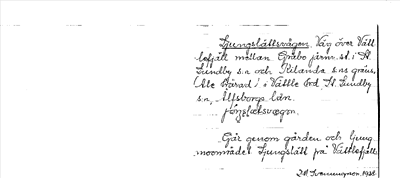 Ljungslättsvägen. Väg över Vätt
lefjäll mellan Gråbo järnv.st. i St.
Lundby s:n och Rilanda s:ns gräns,
Ale härad, i Vättle hd, St. Lundby
s:n, Älvsborgs län.
Går genom gården och ljung
moområdet Ljungslätt på Vättlefjäll.
1928